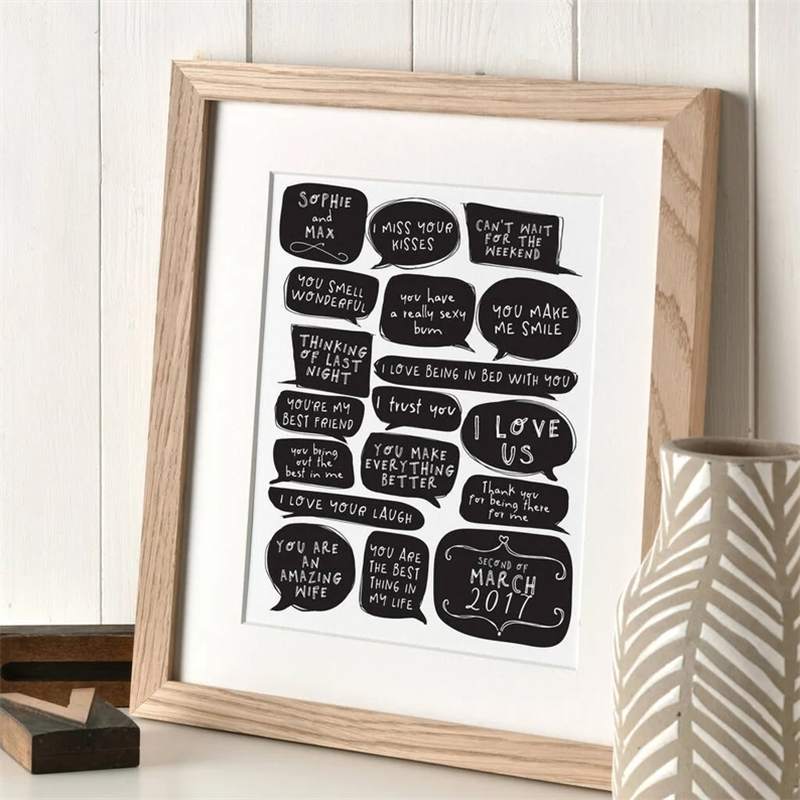 SOPHIE
and
MAX
I MISS YOUR
KISSES
CAN'T WAIT
FOR THE
WEEKEND
YOU SMELL
WONDERFUL
you have
a really sexy
bum
YOU MAKE
ME SMILE
THINKING
OF LAST
NIGHT
I LOVE BEING IN BED WITH YOU
YOU'RE MY
BEST FRIEND
I trust you
I LOVE
US
you bring
out the
best in me
YOU MAKE
EVERYTHING
BETTER
Thank you
for being there
for me
I LOVE YOUR LAUGH
YOU ARE
AN
AMAZING
WIFE
YOU ARE
THE BEST
THING IN
MY LIFE
SECOND OF
MARCH
2017